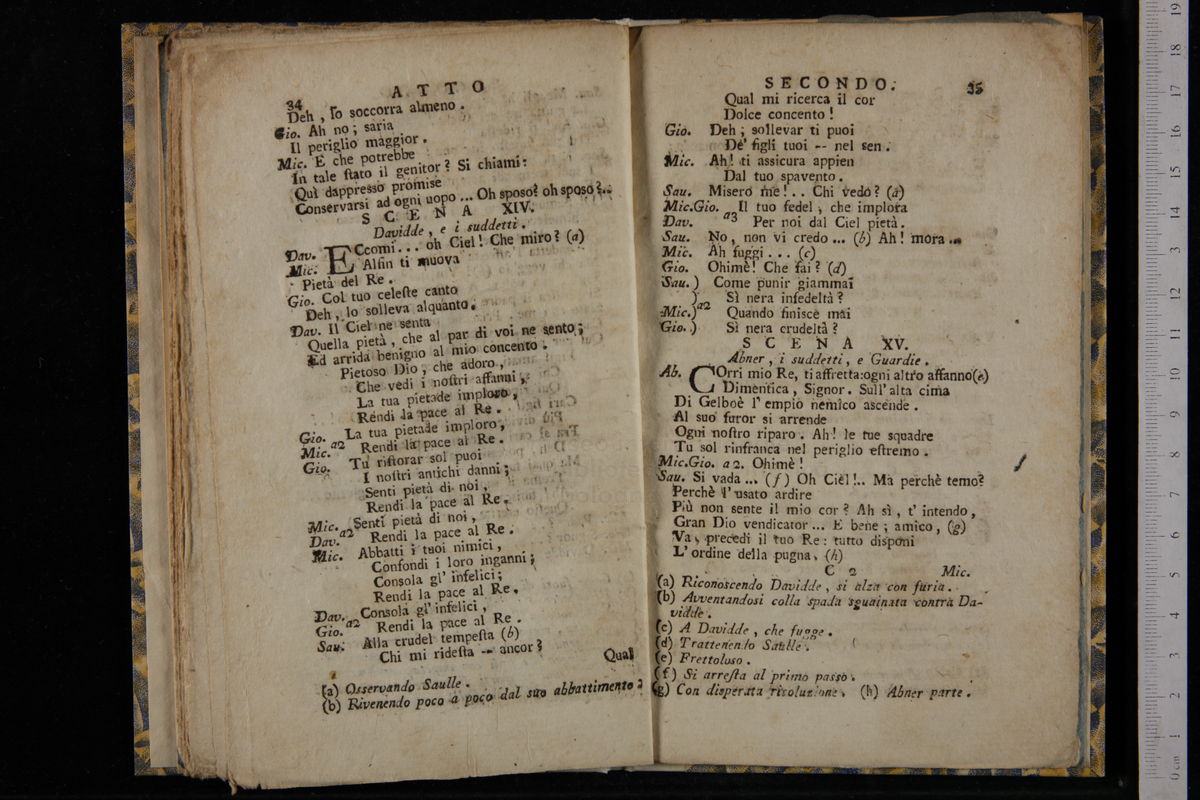 34
ATTO
Deh, lo soccorra almeno.
Gio. Ah no; saria
Il periglio maggior.
Mic. E che potrebbe
In tale ſtato il genitor? Si chiami:
Quì dappresso promise
Conservarsi ad ogni uopo ... Oh sposo? oh sposo?...
SCENA XIV.
Davidde, e i suddetti.
Dav. ECcomi... oh Ciel! Che miro? (a)
Mic. Alfin ti muova
Pietà del Re.
Gio. Col tuo celeſte canto
Deh, lo solleva alquanto.
Dav. Il Ciel ne senta
Quella pietà, che al par di voi ne sento;
Ed arrida benigno al mio concento.
Pietoso Dio, che adoro,
Che vedi i noſtri affanni,
La tua pietade imploro,
Rendi la pace al Re.
Gio. La tua pietade imploro,
Mic. a2 Rendi la pace al Re.
Gio. Tu riſtorar sol puoi
I noſtri antichi danni;
Senti pietà di noi,
Rendi la pace al Re.
Mic. Senti pietà di noi,
Dav. a2 Rendi la pace al Re.
Mic. Abbatti i tuoi nimici,
Confondi i loro inganni;
Consola gl' infelici;
Rendi la pace al Re.
Dav. Consola gl' infelici,
Gio. a2 Rendi la pace al Re.
Sau. Alla crudel tempeſta (b)
Chi mi rideſta -- ancor?
Qual
(a) Osservando Saulle.
(b) Rivenendo poco a poco dal suo abbattimento
SECONDO. 35
Qual mi ricerca il cor
Dolce concento!
Gio. Deh; sollevar ti puoi
De' figli tuoi -- nel sen.
Mic. Ah! ti assicura appien
Dal tuo spavento.
Sau. Misero me!.. Chi vedo? (a)
Mic.Gio. Il tuo fedel, che implora
Dav. a3 Per noi dal Ciel pietà.
Sau. No, non vi credo ... (b) Ah! mora...
Mic. Ah fuggi... (c)
Gio. Ohimè! Che fai? (d)
Sau.) Come punir giammai
) Sì nera infedeltà?
Mic.) a2 Quando finisce mai
Gio.) Sì nera crudeltà?
SCENA XV.
Abner, i suddetti, e Guardie.
Ab. COrri mio Re, ti affretta:ogni altro affanno(e)
Dimentica, Signor. Sull' alta cima
Di Gelboè l' empio nemico ascende.
Al suo furor si arrende
Ogni noſtro riparo. Ah! le tue squadre
Tu sol rinfranca nel periglio eſtremo.
Mic.Gio. a 2. Ohimè!
Sau. Si vada... (f) Oh Ciel!.. Ma perchè temo?
Perchè l' usato ardire
Più non sente il mio cor? Ah sì, t' intendo,
Gran Dio vendicator... E bene; amico, (g)
Va, precedi il tuo Re: tutto disponi
L' ordine della pugna. (h)
C 2 Mic.
(a) Riconoscendo Davidde, si alza con furia.
(b) Avventandosi colla spada sguainata contra Da-
vidde.
(c) A Davidde, che fugge.
(d) Trattenendo Saulle.
(e) Frettoloso.
(f) Si arreſta al primo passo.
(g) Con disperata risoluzione. (h) Abner parte.
0 cm 1 2 3 4 5 6 7 8 9 10 11 12 13 14 15 16 17 18 19